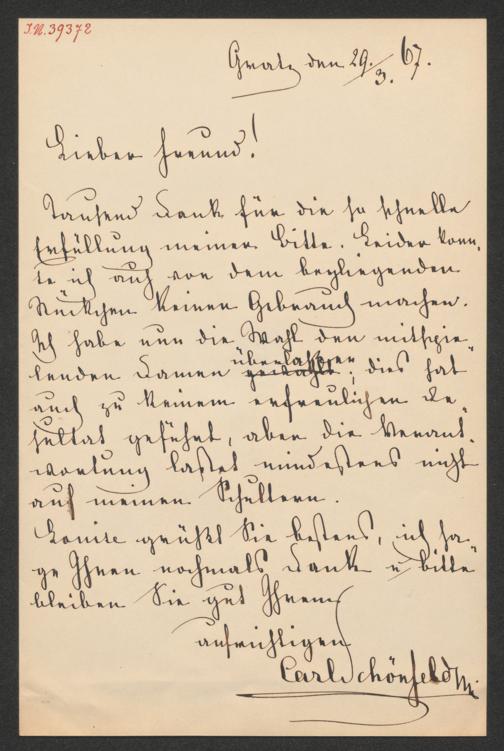 I.N. 39372
Gratz den 29/3. 67.
Lieber Freund!
Tausend Dank für die so schnelle
Erfüllung meiner Bitte. Leider konn„
te ich auch von dem beyliegenden
Stückchen keinen Gebrauch machen.
Ich habe nun die Wahl den mitspie„
lenden Damen überlassen; dies hat
auch zu keinem erfreulichen Re„
sultat geführt, aber die Verant„
wortung lastet mindestens nicht
auf meinen Schultern.
Louise grüßt Sie bestens, ich sa„
ge Ihnen nochmals Dank u bitte
bleiben Sie gut Ihrem
aufrichtigen
Carl Schönfeld